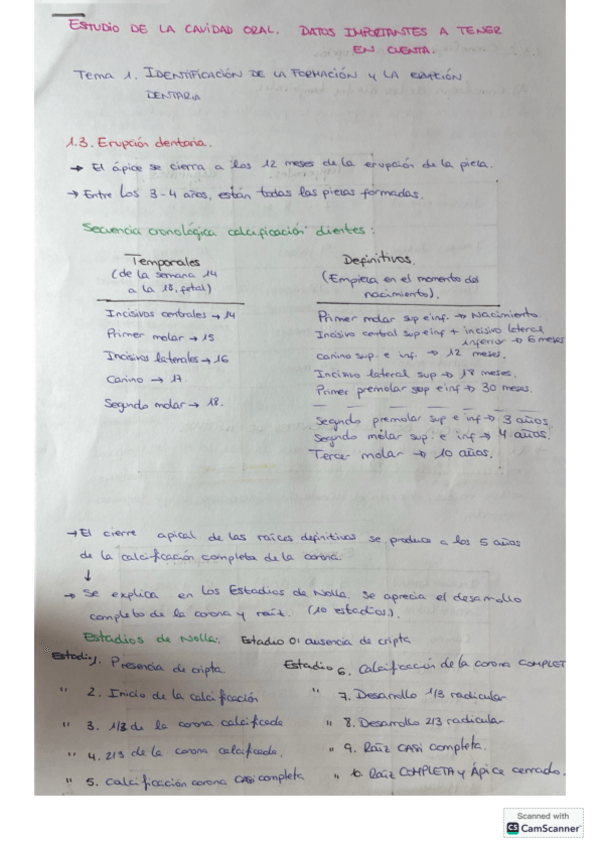 ESTUDIO DE LA CAVIDAD ORAL. DATOS IMPORTANTES A TENER
EN CUENTA.
Tema 1. IDENTIFICACIÓN DE LA FORMACIÓN Y LA ERUPCIÓN
DENTARIA
1.3. Erupción dentaria.
→ El ápice se cierra a los 12 meses de la erupción de la pieza.
→ Entre los 3-4 años, están todas las piezas formadas.
Secuencia cronológica calcificación dientes:
Temporales
(de la semana 14
a la 18, fetal)
Incisivos centrales → 14
Primer molar → 15
Incisivos laterales → 16
Canino → 17
Segundo molar → 18.
Definitivos.
(Empieza en el momento del
nacimiento).
Primer molar sup e inf. → Nacimiento.
Incisivo central sup e inf + incisivo lateral
inferior → 6 meses
Canino sup. e inf. → 12 meses.
Incisivo lateral sup → 18 meses.
Primer premolar sup e inf → 30 meses.
Segundo premolar sup e inf → 3 años.
Segundo molar sup. e inf → 4 años.
Tercer molar → 10 años.
→ El cierre apical de las raíces definitivas se produce a los 5 años
de la calcificación completa de la corona
↓
→ Se explica en los Estadios de Nolla. Se aprecia el desarrollo
completo de la corona y raíz. (10 estadios).
Estadios de Nolla: Estadio 0: ausencia de cripta
Estadio 1. Presencia de cripta
" 2. Inicio de la calcificación
" 3. 1/3 de la corona calcificada
" 4. 2/3 de la corona calcificada.
" 5. Calcificación corona CASI completa
Estadio 6. Calcificación de la corona COMPLET
" 7. Desarrollo 1/3 radicular
" 8. Desarrollo 2/3 radicular
" 9. Raíz CASI completa.
" 10. Raíz COMPLETA y Ápice cerrado.
Scanned with
CS CamScanner